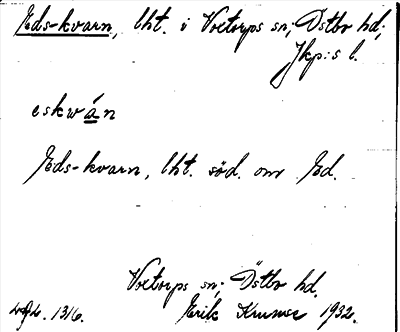 Eds-kvarn, lht. i Voetorps sn; Östbo hd;
Jkp:s l.
eskwán
Eds-kvarn, lht. söd. om Ed.
Voetorps sn; Östbo hd.
Erik 1932.
1316.